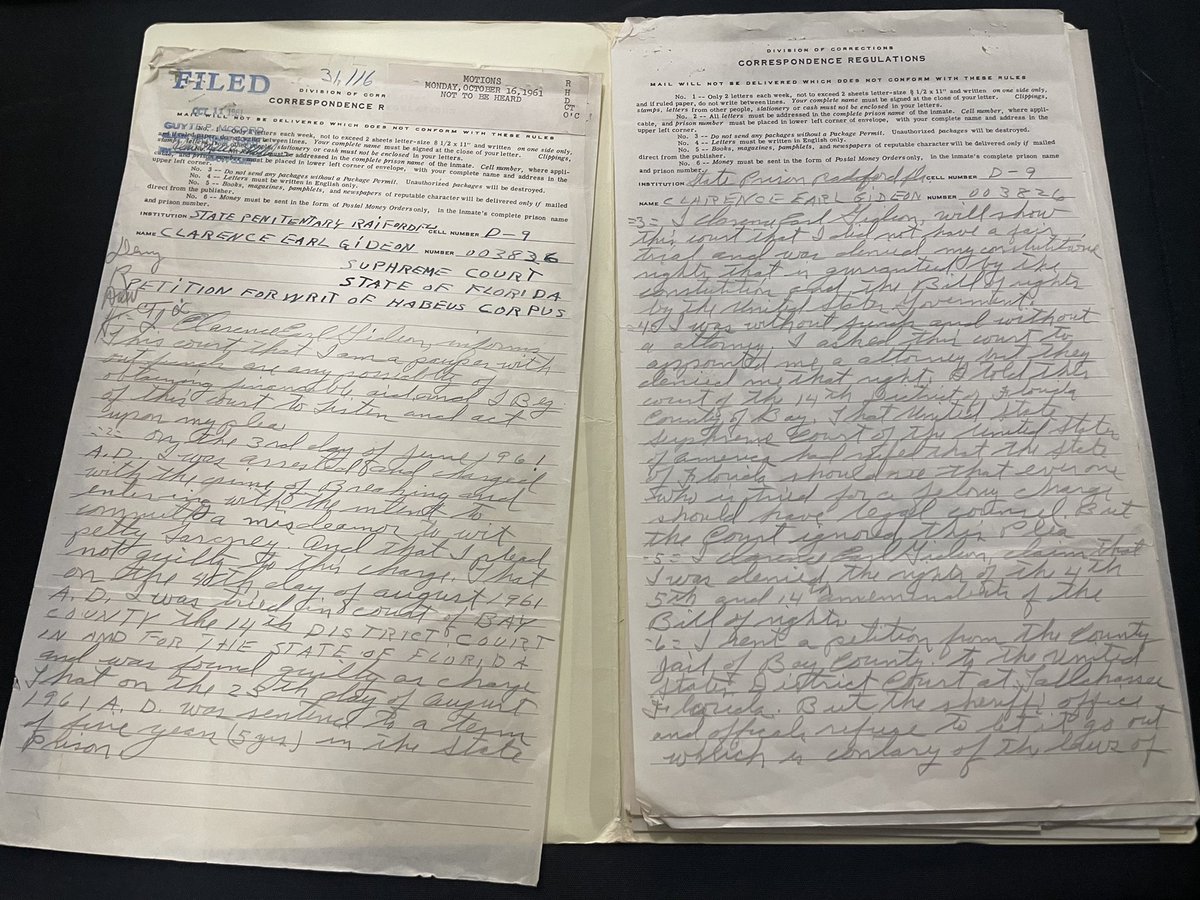 FILED
31,116
MOTIONS
MONDAY, OCTOBER 16, 1961
NOT TO BE HEARD
R
H
D
CT
O'C
DIVISION OF CORR
CORRESPONDENCE R
MAIL WILL NOT BE DELIVERED WHICH DOES NOT CONFORM WITH THESE RULES
letters each week, not to exceed 2 sheets letter-size 8 1/2 x 11" and written on one side only,
and if ruled paper, do not write between lines. Your complete name must be signed at the close of your letter. Clippings,
stationery or cash must not be enclosed in your letters.
must be addressed in the complete prison name of the inmate. Cell number, where appli-
cable, and prison number must be placed in lower left corner of envelope, with your complete name and address in the
upper left corner.
No. 3 -- Do not send any packages without a Package Permit. Unauthorized packages will be destroyed.
No. 4 -- Letters must be written in English only.
No. 5 -- Books, magazines, pamphlets, and newspapers of reputable character will be delivered only if mailed
direct from the publisher.
No. 6 -- Money must be sent in the form of Postal Money Orders only, in the inmate's complete prison name
and prison number.
INSTITUTION STATE PENITENTARY RAIFORD FL CELL NUMBER D-9
NAME CLARENCE EARL GIDEON NUMBER 003826
SUPHREME COURT
STATE OF FLORIDA
PETITION FOR WRIT OF HABEUS CORPUS
Deny
I, Clarence Earl Gideon, informs
This court that I am a pauper with
out funds are any posiality of
obtaining financable aid and I Beg
of this court to listen and act
upon my plea
-2- On the 3rd day of June 1961
A.D. I was arrested and charged
with the crime of Breaking and
entering with the intent to
commit a misdeamor to wit
petty larcney. And that I plead
not guilty to this charge. That
on the 4th day of august 1961
A.D. I was tried in court of BAY
COUNTY THE 14TH DISTRICT COURT
IN AND FOR THE STATE OF FLORIDA
and was found guilty as charge
That on the 25th day of august
1961 A.D. was sentence to a term
of five years (5 yrs) in the State
prison
DIVISION OF CORRECTIONS
CORRESPONDENCE REGULATIONS
MAIL WILL NOT BE DELIVERED WHICH DOES NOT CONFORM WITH THESE RULES
No. 1 -- Only 2 letters each week, not to exceed 2 sheets letter-size 8 1/2 x 11" and written on one side only,
and if ruled paper, do not write between lines. Your complete name must be signed at the close of your letter. Clippings,
stamps, letters from other people, stationery or cash must not be enclosed in your letters.
No. 2 -- All letters must be addressed in the complete prison name of the inmate. Cell number, where appli-
cable, and prison number must be placed in lower left corner of envelope, with your complete name and address in the
upper left corner.
No. 3 -- Do not send any packages without a Package Permit. Unauthorized packages will be destroyed.
No. 4 -- Letters must be written in English only.
No. 5 -- Books, magazines, pamphlets, and newspapers of reputable character will be delivered only if mailed
direct from the publisher.
No. 6 -- Money must be sent in the form of Postal Money Orders only, in the inmate's complete prison name
and prison number.
INSTITUTION State Prison CELL NUMBER D-9
NAME CLARENCE EARL GIDEON NUMBER 003826
-3- I Clarence Earl Gideon, will show
this court that I did not have a fair
trial and was denied my constitutional
rights that is guranteed by the
constitution and the Bill of rights
by the United State Goverment.
-4- I was without funds and without
a attorney. I asked this court to
appoint me a attorney but they
denied me that right. I told this
court of the 14th District of Florida
County of Bay. That United State
Supreme Court of the United States
of america had that the State
of Florida should see that everone
who is tried for a felony charge
should have legal counsel. But
the Court ignored this plea
-5- I Clarence Earl Gideon claim that
I was denied the rights of the 4th
5th and 14 amendments of the
Bill of rights
-6- I sent a petition from the County
Jail of Bay County. to the United
States District Court at Tallahassee
Florida. But the sheriff office
and officals refuse to let it go out
which is contary of the laws of